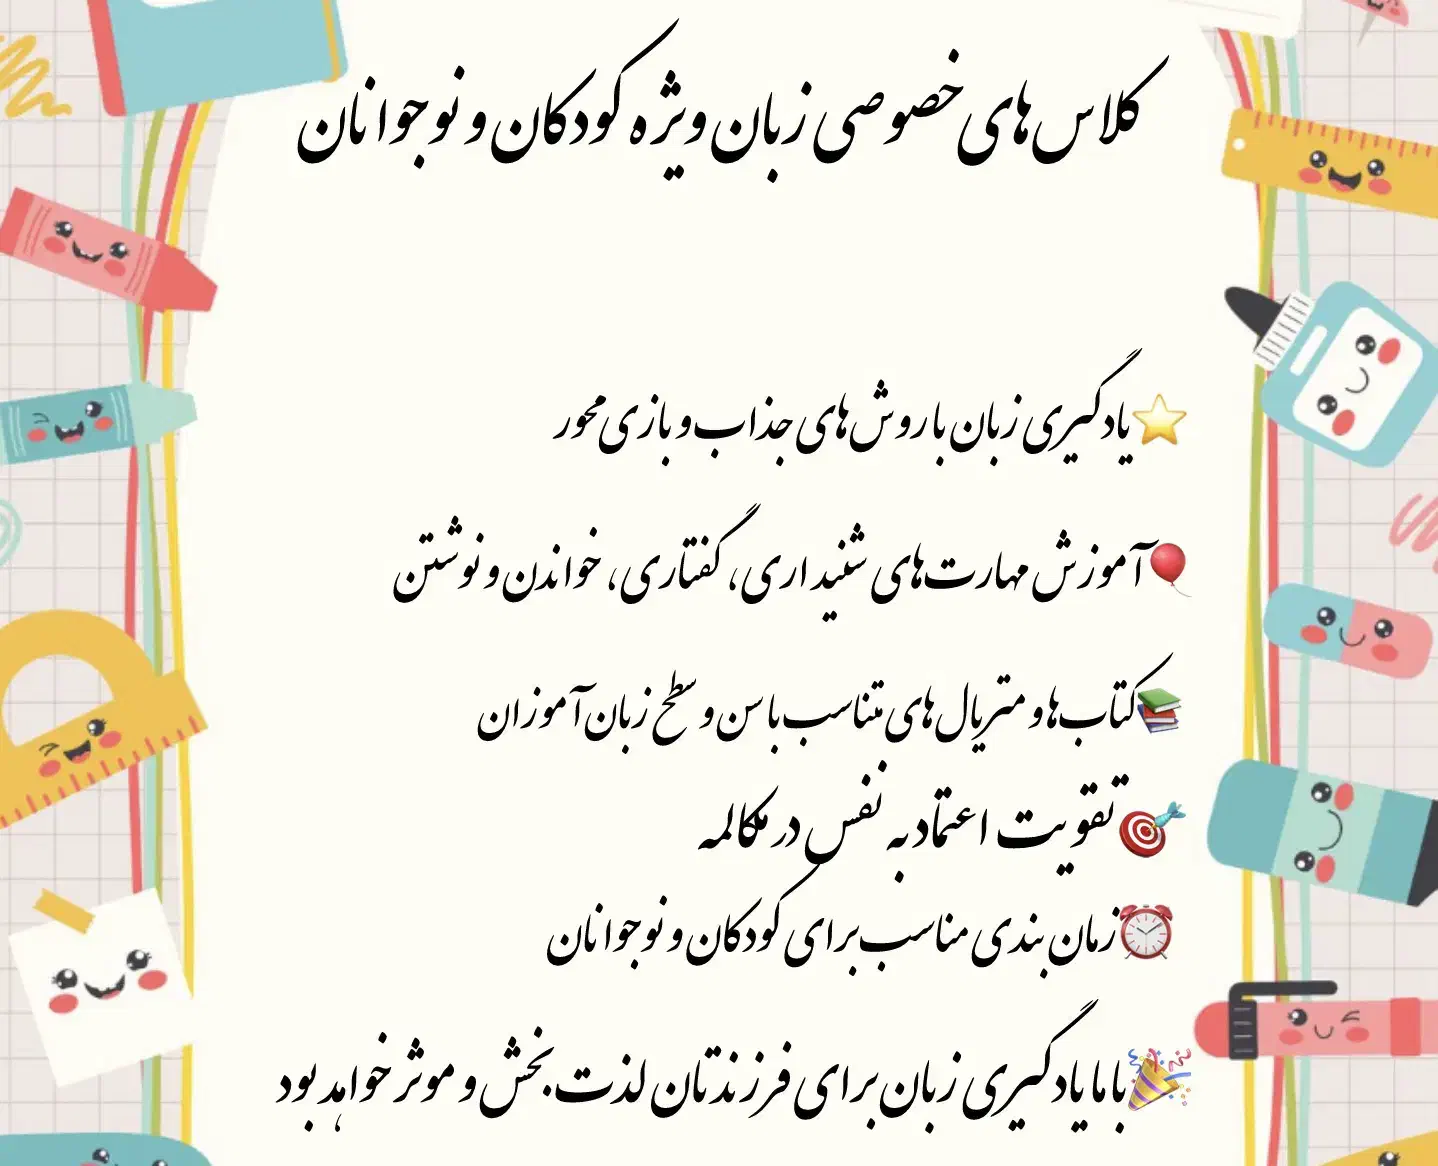 کلاس‌های خصوصی زبان ویژه کودکان و نوجوانان
⭐یادگیری زبان با روش‌های جذاب و بازی‌محور
🎈آموزش مهارت‌های شنیداری، گفتاری، خواندن و نوشتن
📚کتاب‌ها و متریال‌های متناسب با سن و سطح زبان‌آموزان
🎯تقویت اعتماد به نفس در مکالمه
⏰زمان‌بندی مناسب برای کودکان و نوجوانان
🎉با ما یادگیری زبان برای فرزندتان لذت‌بخش و موثر خواهد بود